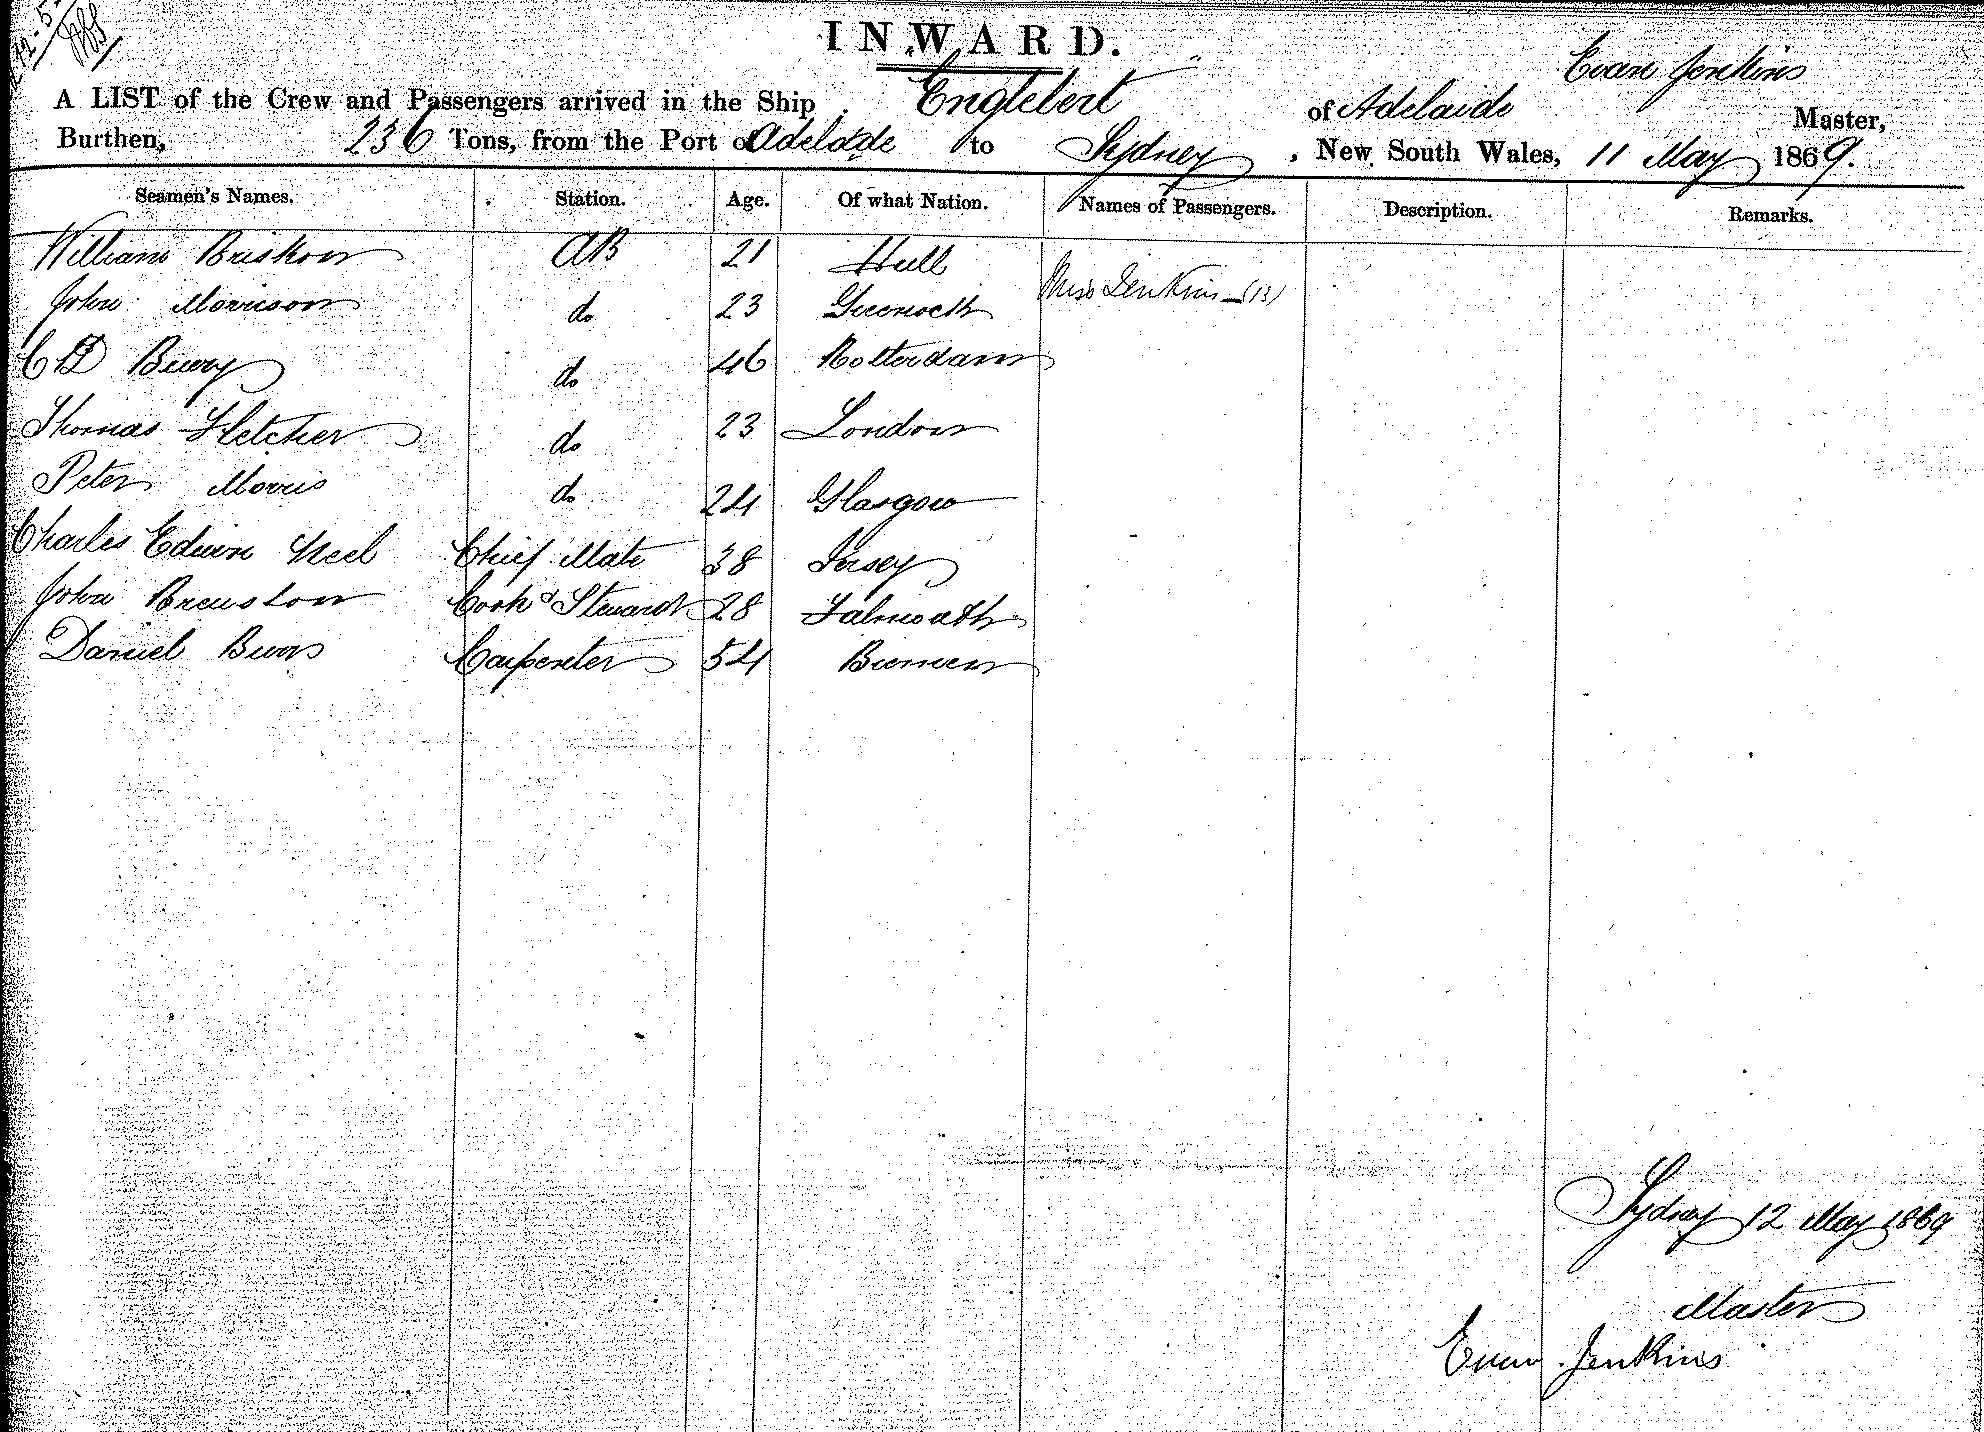 INWARD.
Evan Jenkins
A LIST of the Crew and Passengers arrived in the Ship Englebert of Adelaide Master,
Burthen, 236 Tons, from the Port of Adelaide to Sydney, New South Wales, 11 May 1869.
Seamen's Names. Station. Age. Of what Nation. Names of Passengers. Description. Remarks.
William Briskow AB 21 Hull
John Morrison do 23 Greenock Miss Jenkins (13)
C D do 46 Rotterdam
Thomas Fletcher do 23 London
Peter Morris do 24 Glasgow
Charles Edwin Neel Chief Mate 38 Jersey
John Preuston Cook & Steward 28 Falmouth
Daniel Carpenter 54 Bremen
Sydney 12 May 1869
Master
Evan Jenkins